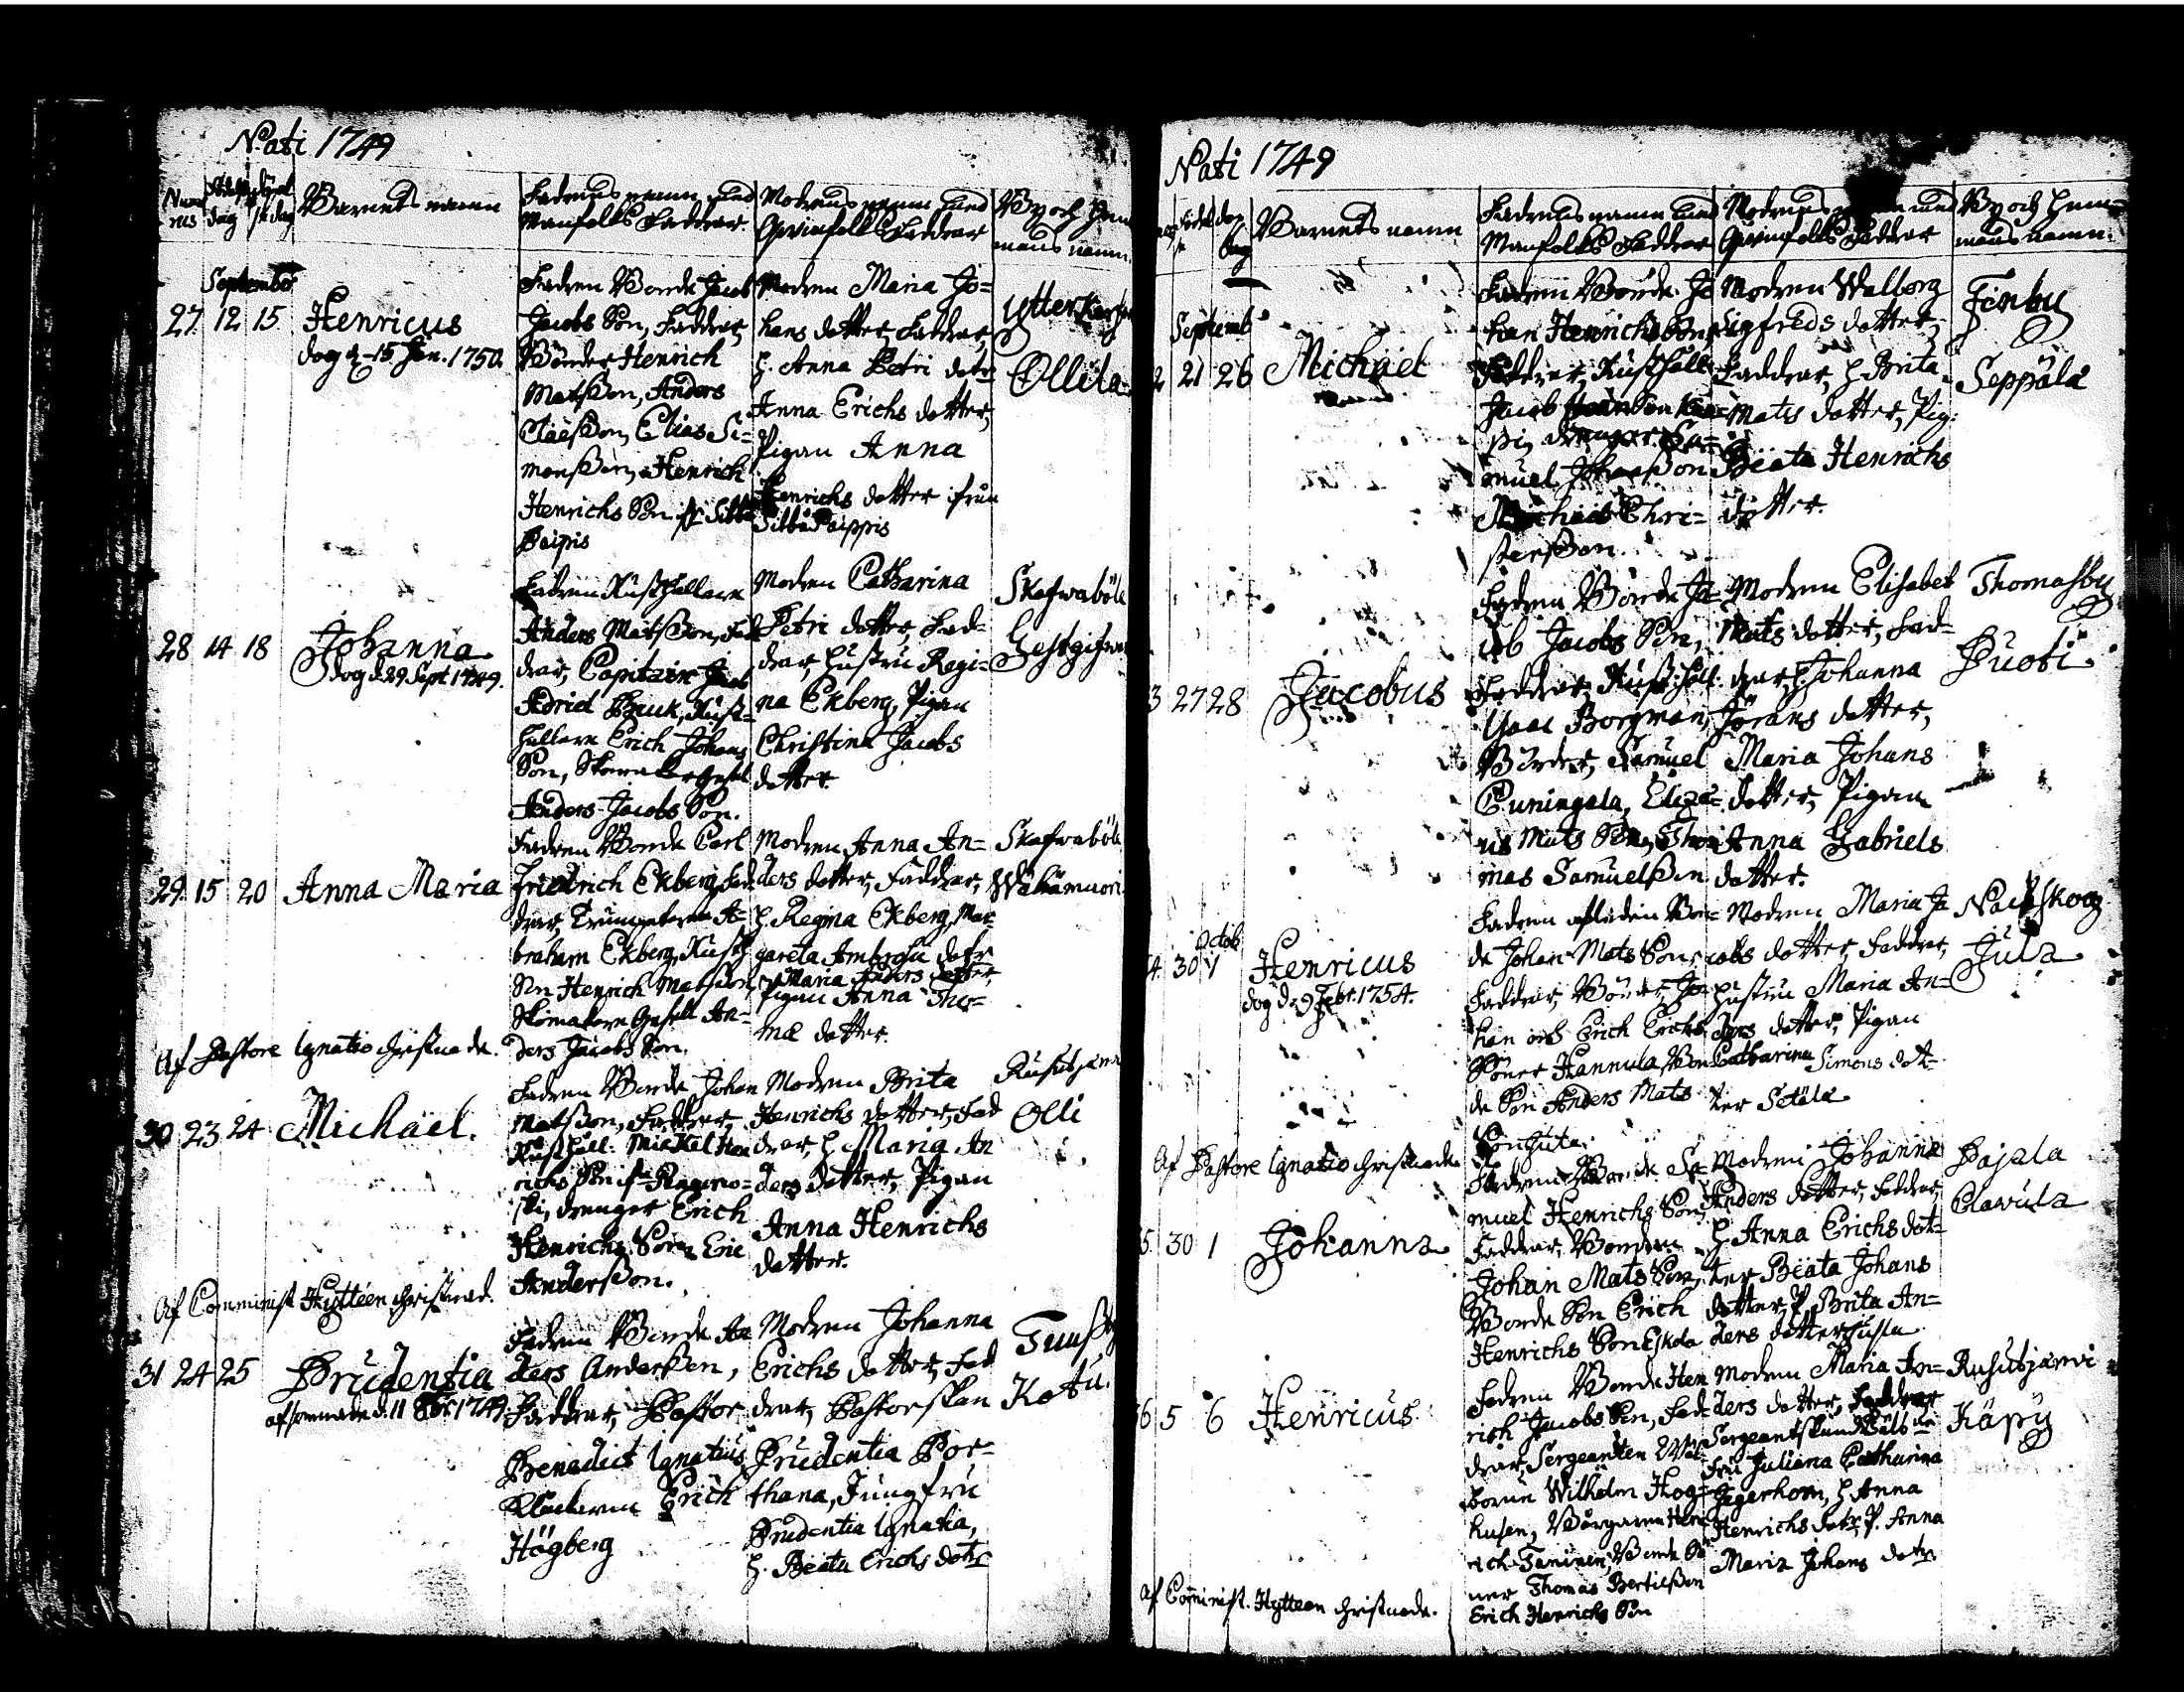 Nati 1749
Barnets namn
Fadrens namn
Manfolks Faddrar
Modrens namn
Qvinfolks Faddrar
September
27. 12 15 Henricus
dog d. 15 Jan. 1750.
Fadren Bonde Jacob
Jacobs Son, Faddrar,
Bönder Henrich
Matsson, Anders
Claesson, Elias Si=
monsson, Henrich
Henrichs Son
Paipis
Modren Maria Jo=
hans dotter, Faddrar,
H. Anna Petri dotr
Anna Erichs dotter,
Pigan Anna
Henrichs dotter ifrån
Sibbo Paippis
Ytterkartz
Ollila
28 14 18 Johanna
dog d. 29 Sept 1749.
Fadren Rusthållare
Anders Matsson, Fad
drar, Capitain Jacob
Adried Brusk, Rust=
hållare Erich Johans
Son, Skomakaregesel
Anders Jacobs Son.
Modren Catharina
Petri dotter, Fad=
drar, Hustru Regi=
na Ekberg, Pigan
Christina Jacobs
dotter.
Skafwaböle
Gestgifwar
29. 15 20 Anna Maria
Fadren Bonde Carl
Friedrich Ekberg, Fad
drar, Trumpetaren A=
braham Ekberg, Rusth
Son Henrich Matsson,
Skomakare Gesell An=
ders Jacobs Son.
Modren Anna An=
ders dotter, Faddrar,
H. Regina Ekberg, Mar
gareta Ambrosii dotr
Maria Anders dotter,
Pigan Anna Tho=
mæ dotter.
Skafwaböle
Wähämuori
Af Pastore Ignatio christnade.
30 23 24 Michaël.
Fadren Bonde Johan
Matsson, Faddrar,
Rusthåll. Mickel Hen
richs Son
drenger Erich
Henrichs Son, Eric
Andersson.
Modren Brita
Henrichs dotter, Fad
drar, H. Maria An
ders dotter, Pigan
Anna Henrichs
dotter.
Rusutjärvi
Olli
Af Comminist Hytteen christnad.
31 24 25 Prudentia
afsomnade d. 11 8br. 1749.
Fadren Bonde An
ders Andersson,
Faddrar, Pastor
Benedict Ignatius
Klockaren Erich
Högberg
Modren Johanna
Erichs dotter, Fad
drar, Pastorskan
Prudentia Por=
thana, Jungfru
Prudentia Ignatia,
H. Beata Erichs dotr
Tuusby
Kotu.
Nati 1749
Barnets namn
Fadrens namn
Manfolks Faddrar
Modrens namn
Qvinfolks Faddrar
Septemb
21 26 Michaël
Fadren Bonde Jo
han Henrichsson,
Faddrar, Rusthåll
muel Johansson
Michael Chri=
stersson.
Modren Walborg
Sigfreds dotter,
Faddrar, H. Brita
Mats dotter, Pig:
Beata Henrichs
dotter.
Finby
Seppälä
3 27 28 Jacobus
Fadren Bonde Ja=
cob Jacobs Son,
Faddrar, Rusthåll.
Isaac Borgman,
Bönder, Samuel
Cuningala,
us Mats Son, Tho
mas Samuelsson
Modren Elisabet
Mats dotter, Fad=
drar, H. Johanna
Jörans dotter,
Maria Johans
dotter, Pigan
Anna Gabriels
dotter.
Thomasby
Puoti
Octob
4. 30 1 Henricus
dog d. 9 Febr. 1754.
Fadren afleden Bon=
de Johan Mats Son,
Faddrar, Bönder, Jo=
han och Erich Erichs
Söner Hannula, Bon
de Son Anders Mats
Son
Modren Maria Ja
cobs dotter, Faddrar,
Hustru Maria An=
ders dotter, Pigan
Catharina Simons dot=
ter Setälä
Nackskog
Jula
Af Pastore Ignatio christnade
5. 30 1 Johanna
Fadren Bonde Sa
muel Henrichs Son,
Faddrar, Bonden
Johan Mats Son,
Bonde Son Erich
Henrichs Son Eskola
Modren Johanna
Anders dotter, Faddrar,
H. Anna Erichs dot=
ter Beata Johans
dotter, P. Brita An=
ders dotter
Pajala
Clavula
6 5 6 Henricus
Fadren Bonde Hen
rich Jacobs Son, Fad=
drar, Sergeanten
boren Wilhelm Hog=
husen, Borgaren Hen
rich Taninen, Bonde Sö
ner Thomas Bertilsson
Erich Henrichs Son
Modren Maria An=
ders dotter, Faddrar
Fru Juliana Catharina
Jegerhorn, H. Anna
Henrichs dotr, P. Anna
Maria Johans dotr
Rusutjärvi
Käpy
Af Comminist. Hytteen christnade.